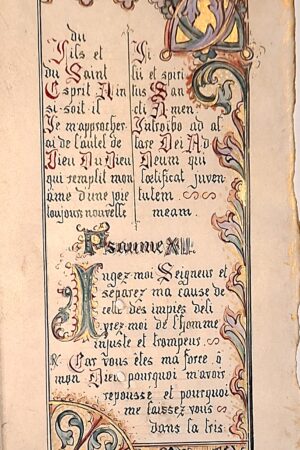 du
Fils et
du Saint
Esprit Ain
si-soit-il
Je m'approcher
ai de l'autel de
Dieu Du Dieu
qui remplit mon
ame d'une joie
toujours nouvelle
Fi
lii et spiri
tus San
cti Amen
Introibo ad al
tare Dei Ad
Deum qui
lœtificat juven
tutem
meam.
Psaume XLII.
Jugez moi Seigneur et
séparez ma cause de
celle des impies deli
vrez moi de l'homme
injuste et trompeur
R. Car vous êtes ma force ô
mon Dieu pourquoi m'avoir
repoussé et pourquoi
me laissez vous
dans la tris